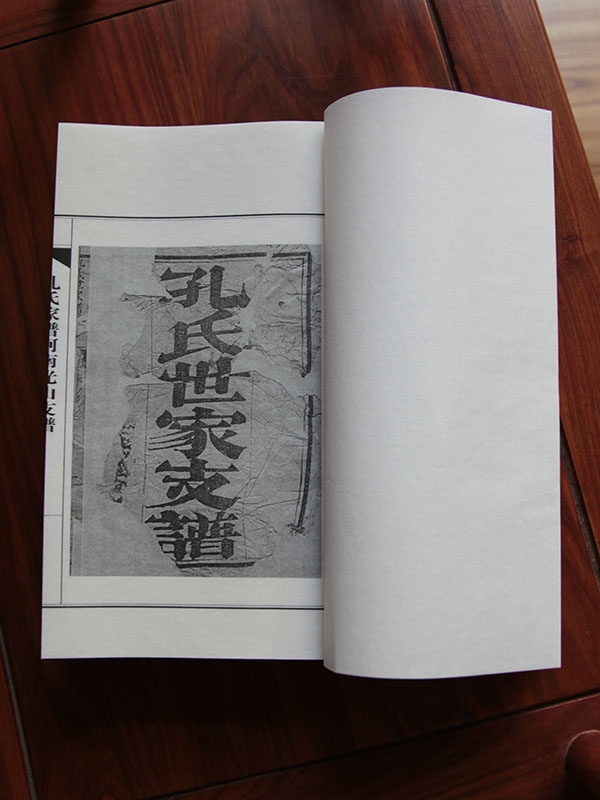 孔氏世家支譜
孔氏家譜河南光山支譜